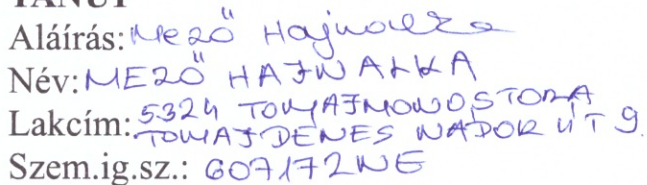 TANÚ
Aláírás: Mező Hajnalka
Név: MEZŐ HAJNALKA
Lakcím: 5324 TOMAJMONOSTORA
TOMAJ DÉNES NÁDOR ÚT 9.
Szem.ig.sz.: 607172NE